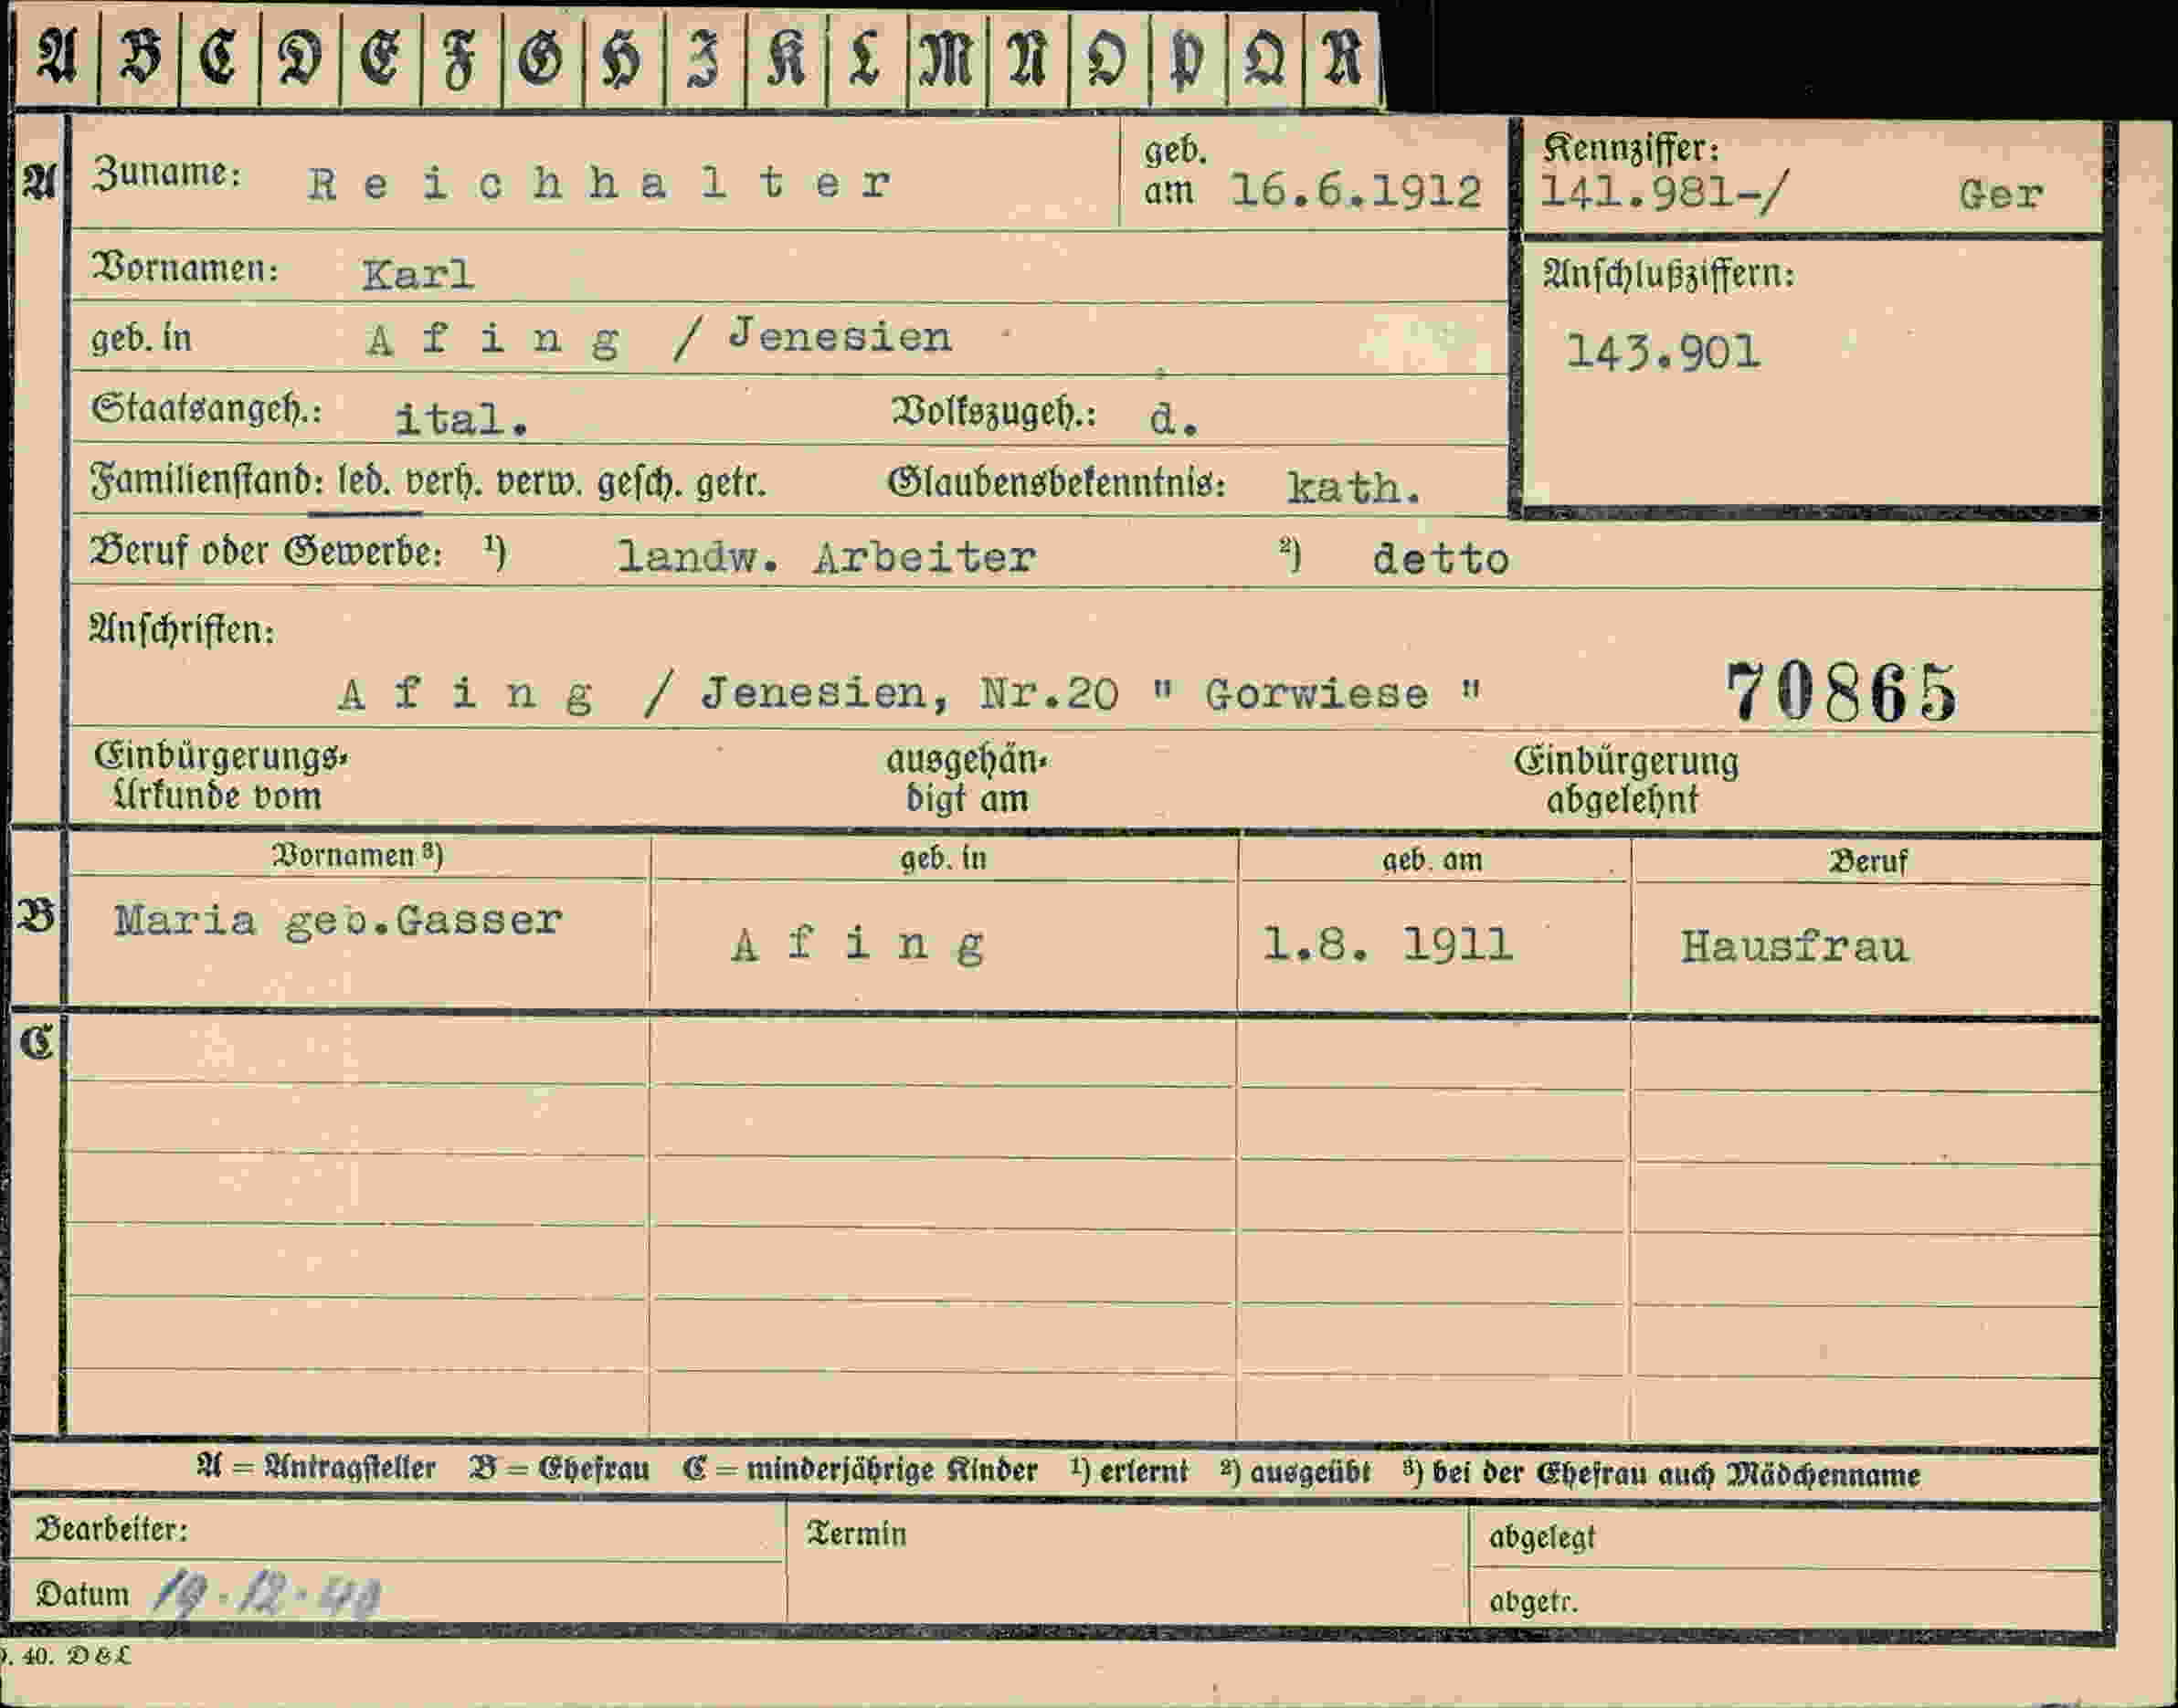 A B C D E F G H I K L M N O P Q R
A Zuname: Reichhalter geb. am 16.6.1912 Kennziffer: 141.981-/ Ger
Vornamen: Karl Anschlußziffern:
geb. in Afing / Jenesien 143.901
Staatsangeh.: ital. Volkszugeh.: d.
Familienstand: led. verh. verw. gesch. getr. Glaubensbekenntnis: kath.
Beruf oder Gewerbe: ¹) landw. Arbeiter ²) detto
Anschriften:
Afing / Jenesien, Nr.20 " Gorwiese " 70865
Einbürgerungs- ausgehän- Einbürgerung
Urkunde vom digt am abgelehnt
Vornamen ³) geb. in geb. am Beruf
B Maria geb.Gasser Afing 1.8. 1911 Hausfrau
C
A = Antragsteller B = Ehefrau C = minderjährige Kinder ¹) erlernt ²) ausgeübt ³) bei der Ehefrau auch Mädchenname
Bearbeiter: Termin abgelegt
Datum 19.12.40 abgetr.
. 40. D & L